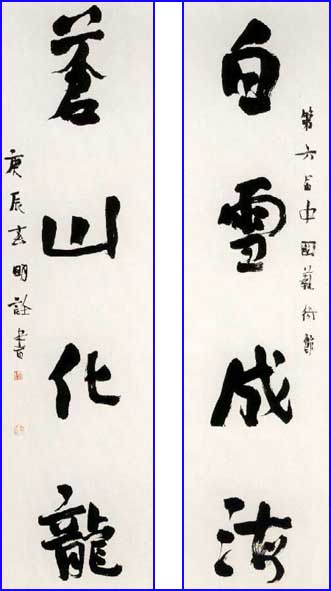 第六届中國藝術節
白雪成海
蒼山化龍
庚辰明詮書